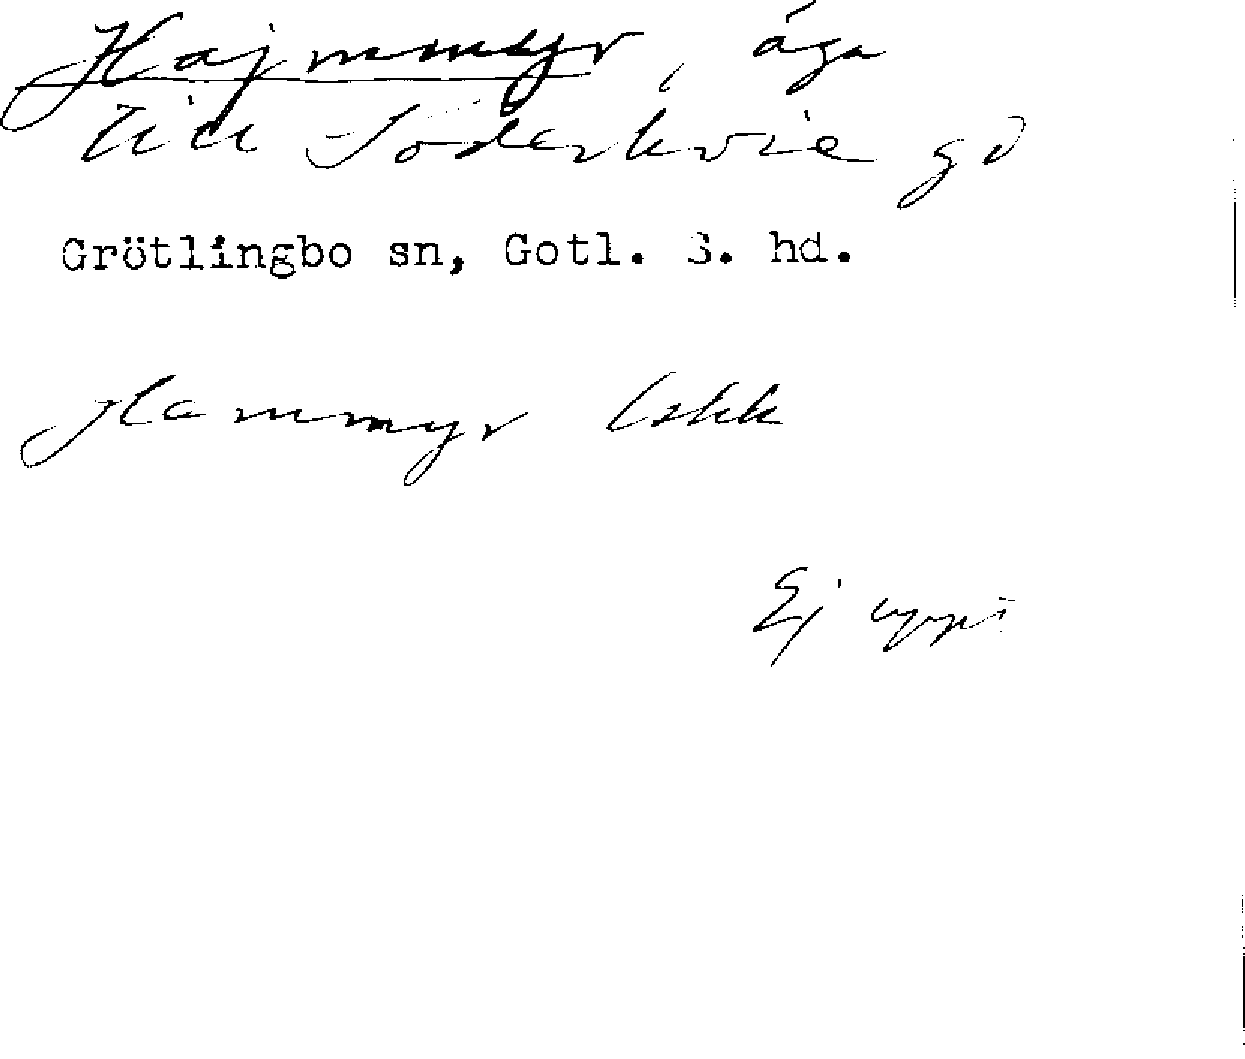 Hajmmyr, äga
till Söderkvie gd
Grötlingbo sn, Gotl. S. hd.
Hammyr Lskk
Ej uppt